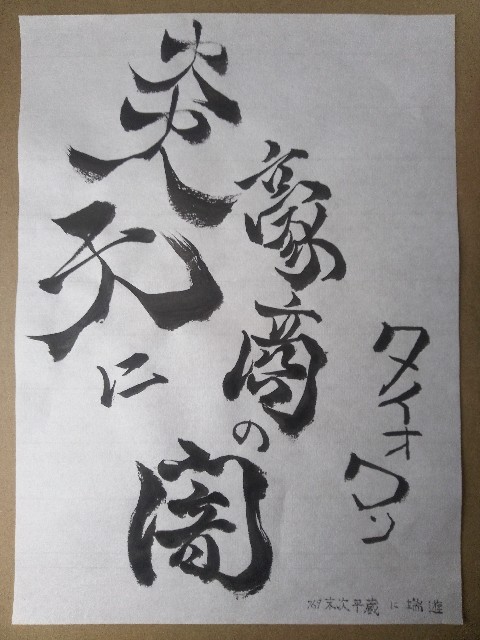 タイオワン
豪商の闇
炎天に
末次平蔵 に